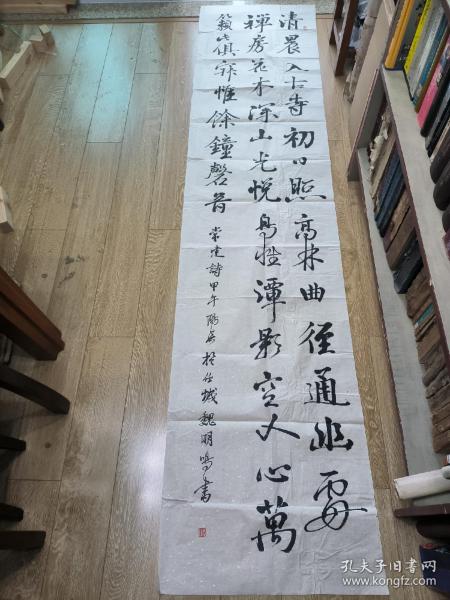 清晨入古寺初日照高林曲径通幽處
禅房花木深山光悦鳥性潭影空人心萬
籟此俱寂惟餘鐘磬音
常建詩甲午陽春於任城魏明鳴書
孔夫子旧书网
www.kongfz.com